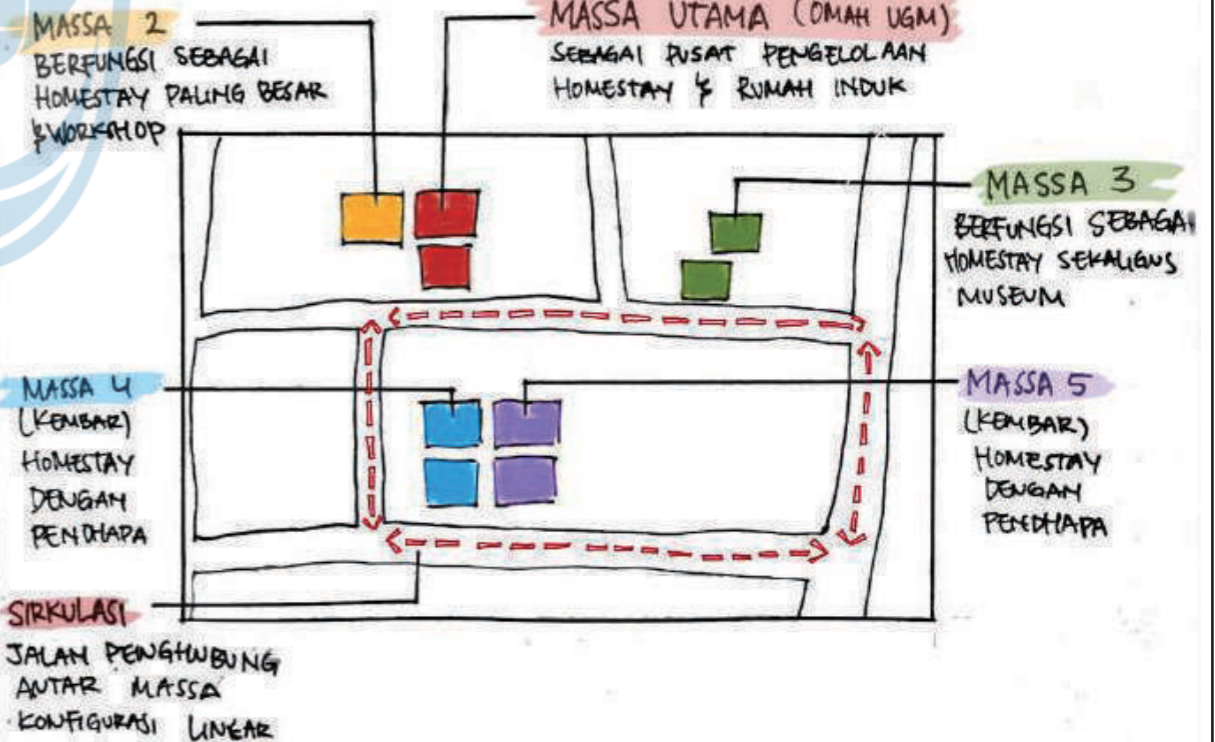 MASSA 2
BERFUNGSI SEBAGAI
HOMESTAY PALING BESAR
& WORKSHOP
MASSA UTAMA (OMAH UGM)
SEBAGAI PUSAT PENGELOLAAN
HOMESTAY & RUMAH INDUK
MASSA 3
BERFUNGSI SEBAGAI
HOMESTAY SEKALIGUS
MUSEUM
MASSA 4
(KEMBAR)
HOMESTAY
DENGAN
PENDHAPA
MASSA 5
(KEMBAR)
HOMESTAY
DENGAN
PENDHAPA
SIRKULASI
JALAN PENGHUBUNG
ANTAR MASSA
KONFIGURASI LINEAR